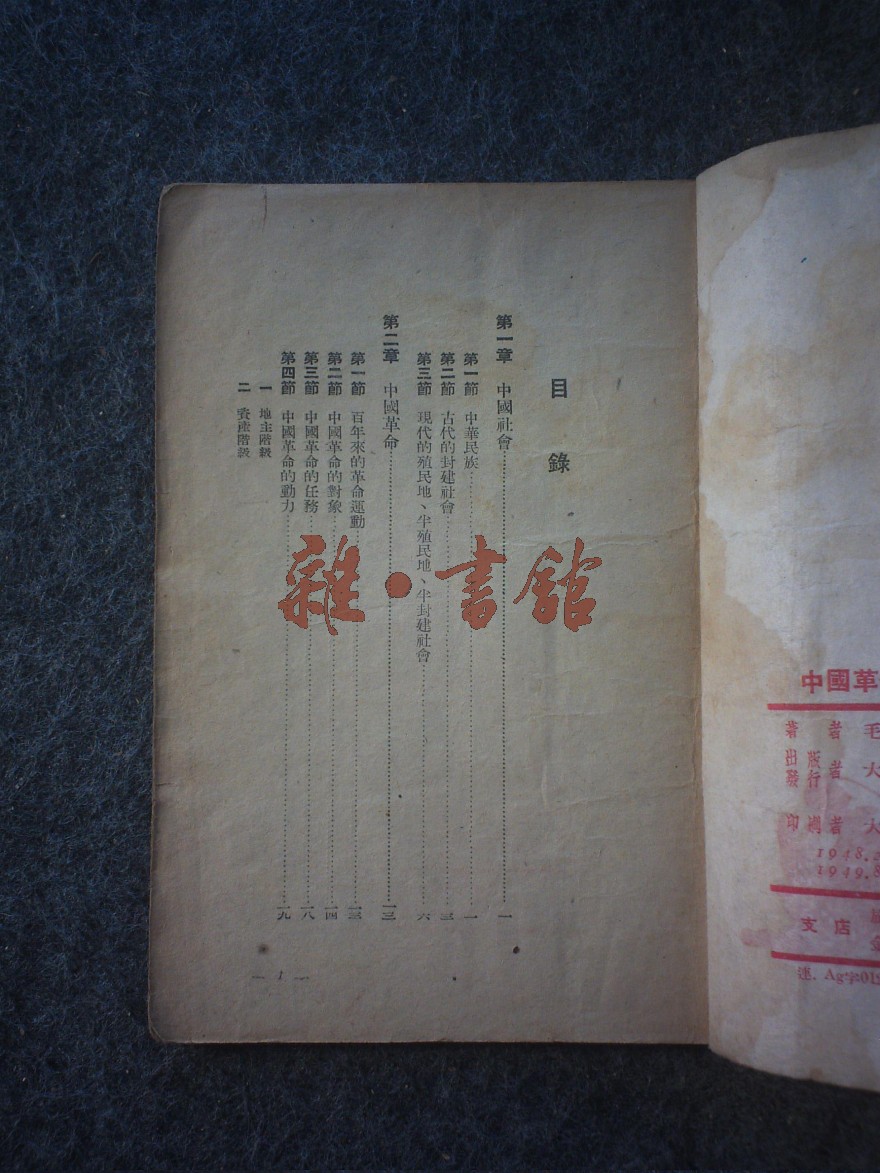 目錄
第一章 中國社會……一
第一節 中華民族……一
第二節 古代的封建社會……三
第三節 現代的殖民地、半殖民地、半封建社會……六
第二章 中國革命……一三
第一節 百年來的革命運動……一三
第二節 中國革命的對象……一四
第三節 中國革命的任務……一八
第四節 中國革命的動力……一九
一 地主階級
二 資產階級
— 1 —
雜·書館
中國革
著者 毛
出版發行者 大
印刷者 大
1948.
1949.8
支店
連. Ag字01